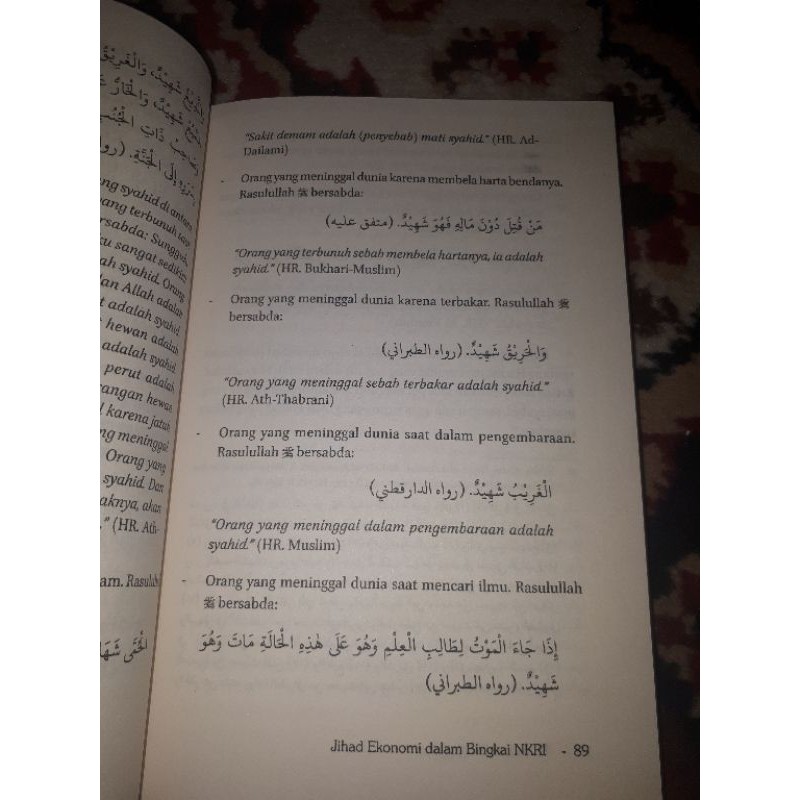 شَهِيْدٌ، وَالْغَرِيْقُ
شَهِيْدٌ، وَالْخَارُّ عَ
ذَاتِ الْجُنُبِ
إِلَى الْجَنَّةِ. (رواه
ng syahid di antara
yang terbunuh
rsabda: Sungguh,
ku sangat sedikit
ah syahid. Orang
lan Allah adalah
t adalah syahid.
hewan adalah
adalah syahid.
perut adalah
rangan hewan
karena jatuh
ng meninggal
Orang yang
syahid. Dan
aknya, akan
." (HR. Ath-
am. Rasulullah
الْحُمَّى شَهَا
"Sakit demam adalah (penyebab) mati syahid." (HR. Ad-
Dailami)
- Orang yang meninggal dunia karena membela harta bendanya.
Rasulullah ﷺ bersabda:
مَنْ قُتِلَ دُوْنَ مَالِهِ فَهُوَ شَهِيْدٌ. (متفق عليه)
"Orang yang terbunuh sebab membela hartanya, ia adalah
syahid." (HR. Bukhari-Muslim)
- Orang yang meninggal dunia karena terbakar. Rasulullah ﷺ
bersabda:
وَالْحَرِيْقُ شَهِيْدٌ. (رواه الطبراني)
"Orang yang meninggal sebab terbakar adalah syahid."
(HR. Ath-Thabrani)
- Orang yang meninggal dunia saat dalam pengembaraan.
Rasulullah ﷺ bersabda:
الْغَرِيْبُ شَهِيْدٌ. (رواه الدارقطني)
"Orang yang meninggal dalam pengembaraan adalah
syahid." (HR. Muslim)
- Orang yang meninggal dunia saat mencari ilmu. Rasulullah
ﷺ bersabda:
إِذَا جَاءَ الْمَوْتُ لِطَالِبِ الْعِلْمِ وَهُوَ عَلَى هٰذِهِ الْحَالَةِ مَاتَ وَهُوَ
شَهِيْدٌ. (رواه الطبراني)
Jihad Ekonomi dalam Bingkai NKRI - 89